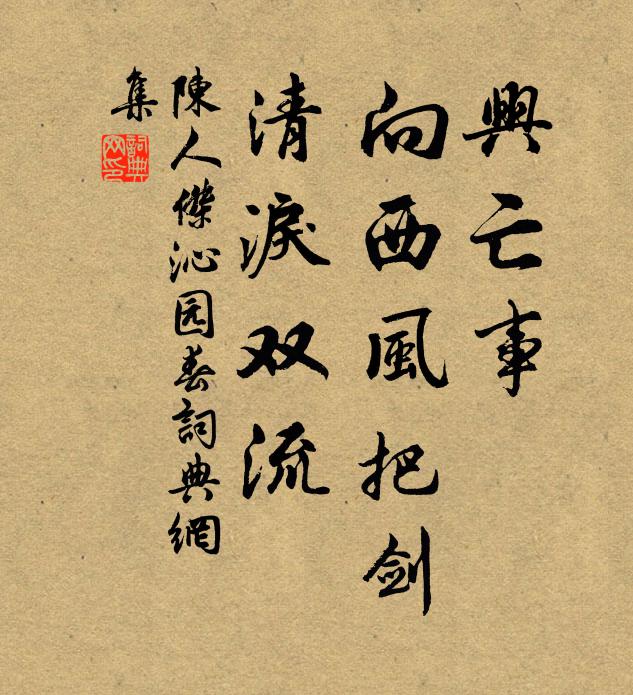 興亡事
向西風把剑
清淚双流
陳人傑沁园春詞典網
集
詞典
网印